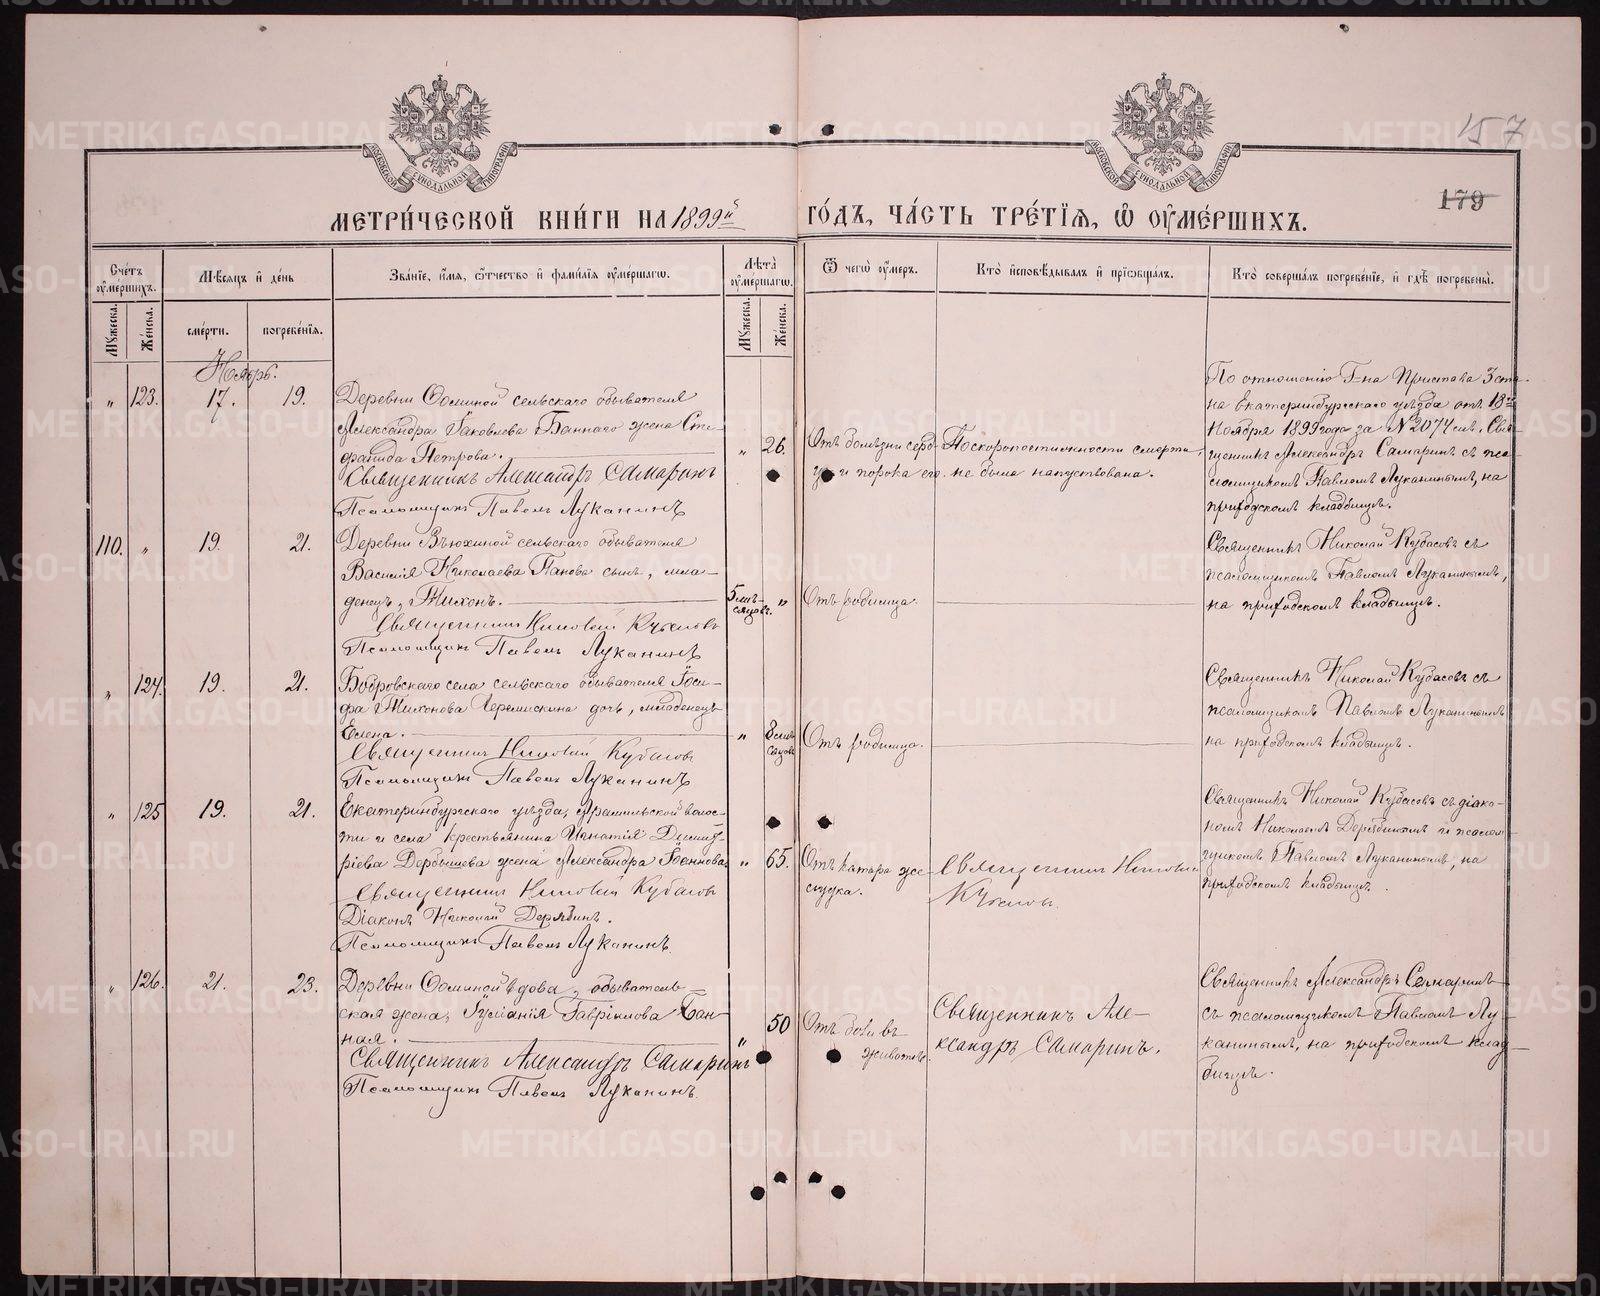 157
179
МЕТРИ́ЧЕСКОЙ КНИ́ГИ НА 1899й ГО́ДЪ, ЧА́СТЬ ТРЕ́ТІѦ, Ѽ ОУМЕ́РШИХЪ.
Сче́тъ оумершихъ.
Мѣсяцъ и де́нь
Зва́ніе, и́мя, ѻтчество и фами́лія оуме́ршагѡ.
Лѣта̀ оуме́ршагѡ.
Ѿ чегѡ̀ оу́меръ.
Кто̀ исповѣдывалъ и пріѡбща́лъ.
Кто̀ соверша́лъ погребе́ніе, и гдѣ̀ погребены̀.
Мꙋжеска.
Же́нска.
сме́рти.
погребе́нія.
Мꙋжеска.
Же́нска.
Ноябрь.
" 123. 17. 19.
Деревни Ѳоминой сельскаго обывателя
Александра Іаковлева Баннаго жена Сте-
фанида Петрова.
Священникъ Александръ Самаринъ
Псаломщикъ Павелъ Луканинъ
" 26.
Отъ болѣзни серд-
ца и порока его.
По скоропостижности смерти,
не была напутствована.
По отношенію Г-на Пристава 3 ста-
на Екатеринбургскаго уѣзда отъ 18го
Ноября 1899 года за №2074мъ. Свя-
щенникъ Александръ Самаринъ съ пса-
ломщикомъ Павломъ Луканинымъ, на
приходскомъ кладбищѣ.
110. " 19. 21.
Деревни Вьюхиной сельскаго обывателя
Василія Николаева Панова сынъ, мла-
денецъ, Тихонъ.
Священникъ Николай Кубасовъ
Псаломщикъ Павелъ Луканинъ
5 мѣ-
сяцовъ. "
Отъ родимца.
Священникъ Николай Кубасовъ съ
псаломщикомъ Павломъ Луканинымъ,
на приходскомъ кладбищѣ.
" 124. 19. 21.
Бобровскаго села сельскаго обывателя Іоси-
фа Тихонова Черемискина дочь, младенецъ
Елена.
Священникъ Николай Кубасовъ
Псаломщикъ Павелъ Луканинъ
" 8 мѣ-
сяцовъ
Отъ родимца.
Священникъ Николай Кубасовъ съ
псаломщикомъ Павломъ Луканинымъ
на приходскомъ кладбищѣ.
" 125 19. 21.
Екатеринбургскаго уѣзда, Арамильской волос-
ти и села крестьянина Игнатія Димит-
ріева Дербышева жена Александра Іоаннова
Священникъ Николай Кубасовъ
Діаконъ Николай Дерябинъ.
Псаломщикъ Павелъ Луканинъ.
" 65.
Отъ катара же-
лудка.
Священникъ Николай
Кубасовъ.
Священникъ Николай Кубасовъ съ діако-
номъ Николаемъ Дерябинымъ и псалом-
щикомъ Павломъ Луканинымъ, на
приходскомъ кладбищѣ.
" 126. 21. 23.
Деревни Ѳоминой вдова, обыватель-
ская жена, Іуліанія Гавріилова Бан-
ная.
Священникъ Александръ Самаринъ
Псаломщикъ Павелъ Луканинъ.
" 50
Отъ боли въ
животѣ.
Священникъ Але-
ксандръ Самаринъ.
Священникъ Александръ Самаринъ
съ псаломщикомъ Павломъ Лу-
канинымъ, на приходскомъ клад-
бищѣ.
METRIKI.GASO-URAL.RU